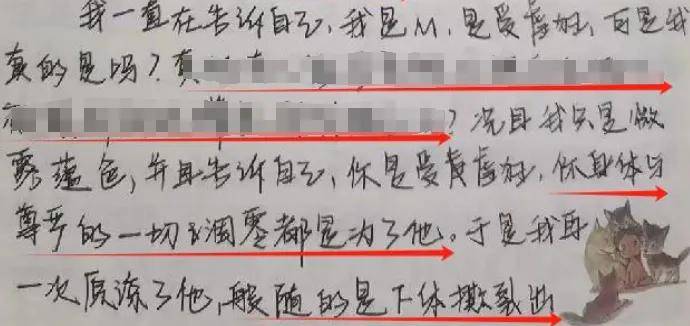 我一直在告诉自己,我是M,是受虐狂,可是我
真的是吗?真
?况且我只是做
露蕴色,并且告诉自己,你是受虐狂,你身体与
尊严的一切凋零都是为了他。于是我再
一次原谅了他,般随的是下体撕裂出